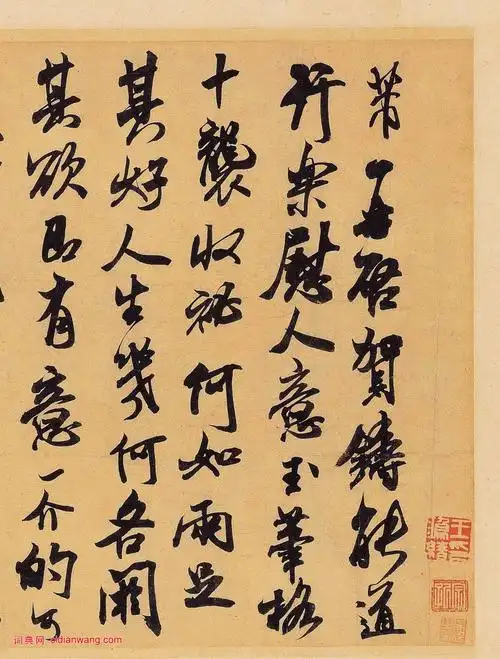 芾再啓賀鑄能道
行樂慰人意玉筆格
十襲收祕何如兩足
其好人生幾何各闕
其欲即有意一介的可
词典网-cidianwang.com